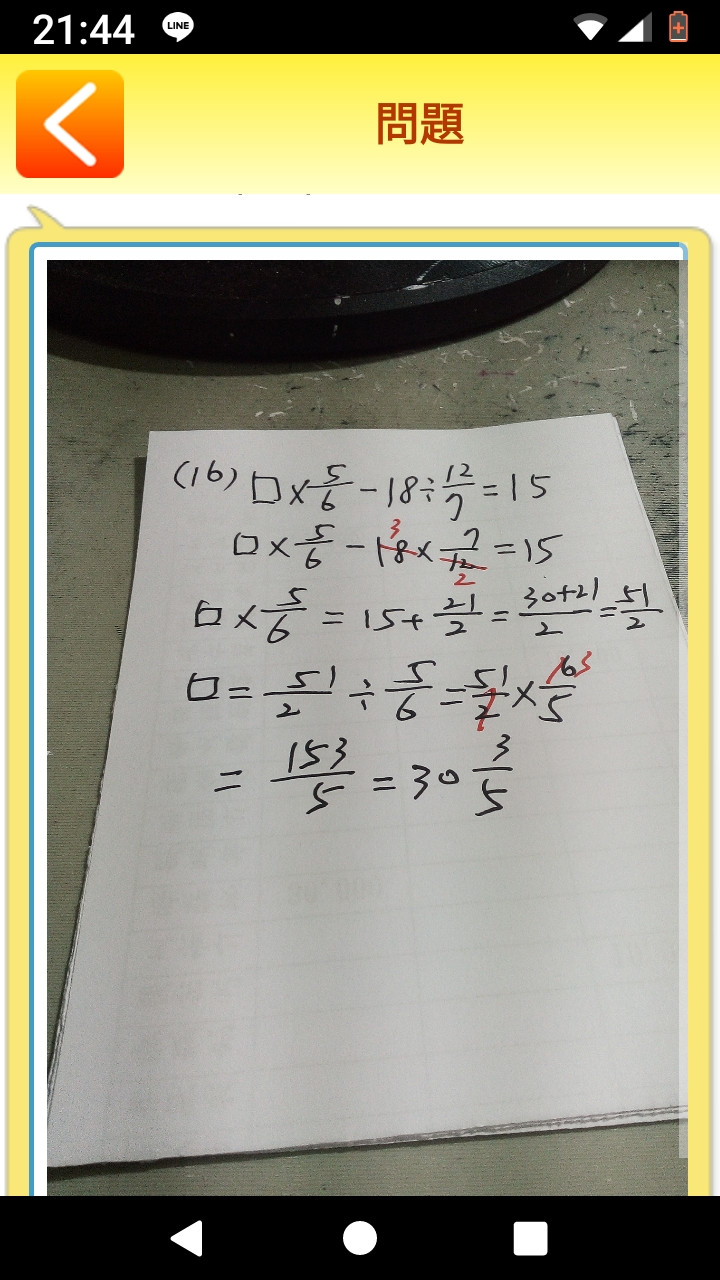 21:44 LINE
問題
(16) □×5/6-18÷12/7=15
□×5/6-18×7/12=15
3
2
□×5/6=15+21/2=30+21/2=51/2
□=51/2÷5/6=51/2×6/5
3
1
=153/5=30 3/5